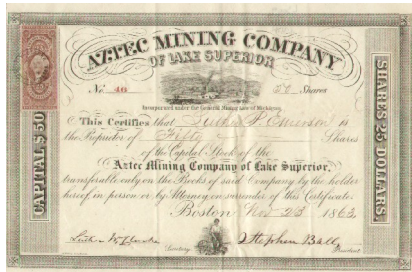 AZTEC MINING COMPANY
OF LAKE SUPERIOR
No. 46 50 Shares
Incorporated under the General Mining Law of Michigan.
This Certifies that P. Emerson is
the Proprietor of Fifty Shares
of the Capital Stock of the
Aztec Mining Company of Lake Superior,
transferable only on the Books of said Company by the holder
hereof in person or by Attorney on surrender of this Certificate.
Boston Nov 23 1863
Secretary Stephen Ball President
CAPITAL $50
SHARES 25 DOLLARS.